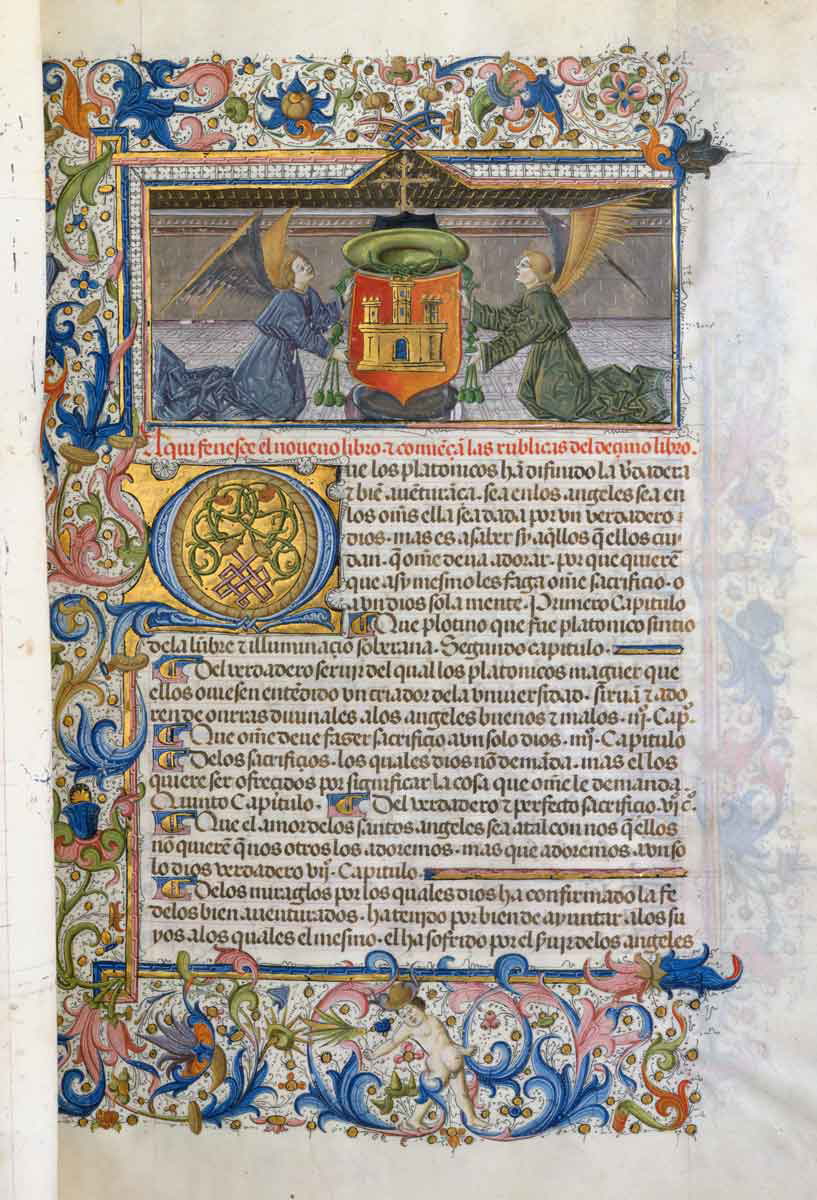 Aqui fenesce el noueno libro ⁊ comiẽçã las rublicas del deçimo libro.
Que los platonicos hã difinido la v̾dadera
⁊ biẽ auenturãca. sea en los angeles sea en
los om̃s ella sea dada por vn verdadero
dios. mas es a saber sy aq̃llos q̃ ellos cui
dan. q̃ om̃e deua adorar. por que quierẽ
que asy mesmo les faga om̃e sacrificio. o
a vn dios sola mente. Primero Capitulo
Que plotino que fue platonico sintio
de la lũbre ⁊ illuminaçio soberana. Segundo capitulo.
Del verdadero seruir del qual los platonicos maguer que
ellos ouiesen entẽdido vn criador de la vniuersidad. siruã ⁊ ado
ren de onrras diuinales a los angeles buenos ⁊ malos. iij. Capº.
Que om̃e deue fazer sacrifiçio a vn solo dios. iiij. Capitulo
De los sacrifiçios. los quales dios nõ demãda. mas el los
quiere ser ofreçidos por significar la cosa que om̃e le demanda.
Quinto Capitulo. Del verdadero ⁊ perfecto sacrifiçio. vj c̃.
Que el amor de los santos angeles sea atal con nos q̃ ellos
nõ quierẽ q̃ nos otros los adoremos. mas que adoremos a vn so
lo dios verdadero vij. Capitulo.
De los miraglos por los quales dios ha confirmado la fe
de los bien auenturados. ha tenido por bien de ayuntar a los su
yos a los quales el mesmo. el ha sofrido por el s̃uir de los angeles